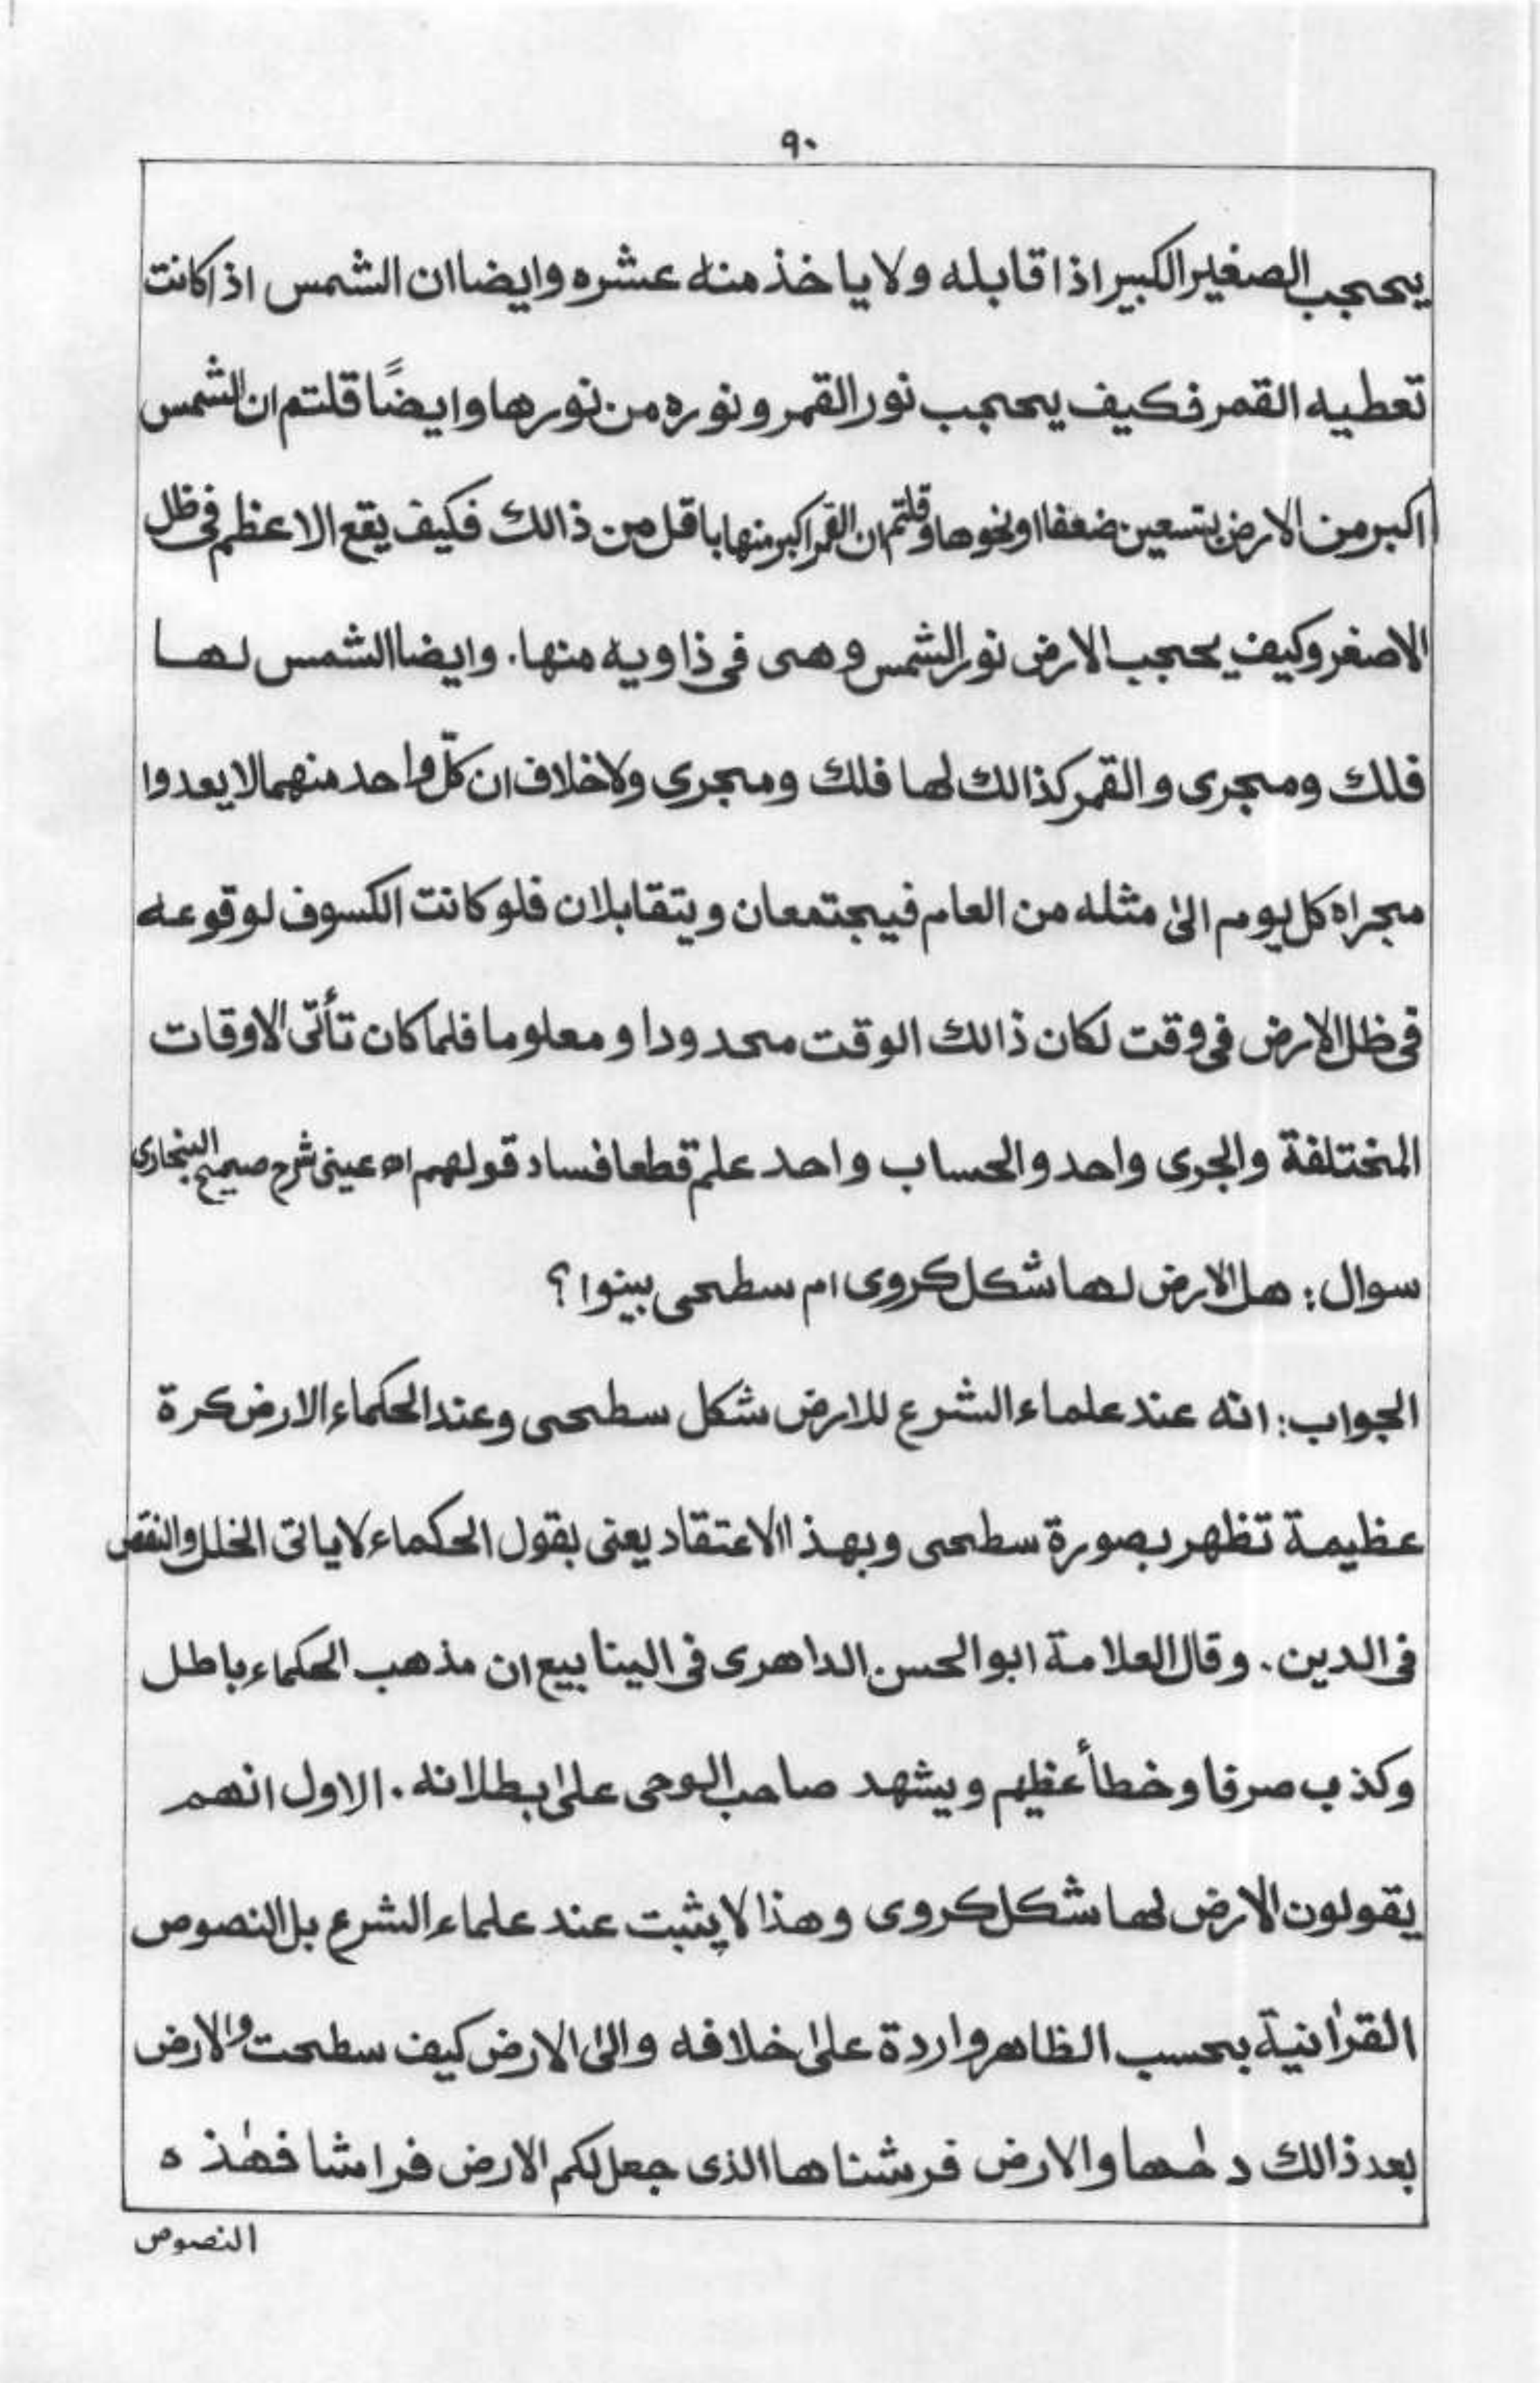 ۹۰
يحجب الصغير الكبير اذا قابله ولا ياخذ منه عشره وايضا ان الشمس اذا كانت
تعطيه القمر فكيف يحجب نور القمر ونوره من نورها وايضًا قلتم ان الشمس
اكبر من الارض بتسعين ضعفا اونحوها وقلتم ان القمر اكبر منها باقل من ذالك فكيف يقع الاعظم فى ظل
الاصغر وكيف يحجب الارض نور الشمس وهى فى ذاويه منها. وايضا الشمس لها
فلك ومجرى والقمر كذالك لها فلك ومجرى ولا خلاف ان كلّ واحد منهما لا يعدوا
مجراه كل يوم الىٰ مثله من العام فيجتمعان ويتقابلان فلو كانت الكسوف لوقوعه
فى ظل الارض فى وقت لكان ذالك الوقت محدودا ومعلوما فلما كان تأتى الاوقات
المختلفة والجرى واحد والحساب واحد علم قطعا فساد قولهم اه عينى شرح صحيح البخارى
سوال: هل الارض لها شكل كروى ام سطحى بينوا؟
الجواب: انه عند علماء الشرع للارض شكل سطحى وعند الحكماء الارض كرة
عظيمة تظهر بصورة سطحى وبهذا الاعتقاد يعنى بقول الحكماء لا ياتى الخلل والنقص
فى الدين. وقال العلامة ابوالحسن الداهرى فى الينابيع ان مذهب الحكماء باطل
وكذب صرفا وخطأ عظيم ويشهد صاحب الوحى علىٰ ابطلانه. الاول انهم
يقولون الارض لها شكل كروى وهذا لا يثبت عند علماء الشرع بل النصوص
القراٰنية بحسب الظاهر واردة علىٰ خلافه والىٰ الارض كيف سطحت والارض
بعد ذالك دحٰها والارض فرشناها الذى جعل لكم الارض فراشا فهٰذه
النصوص